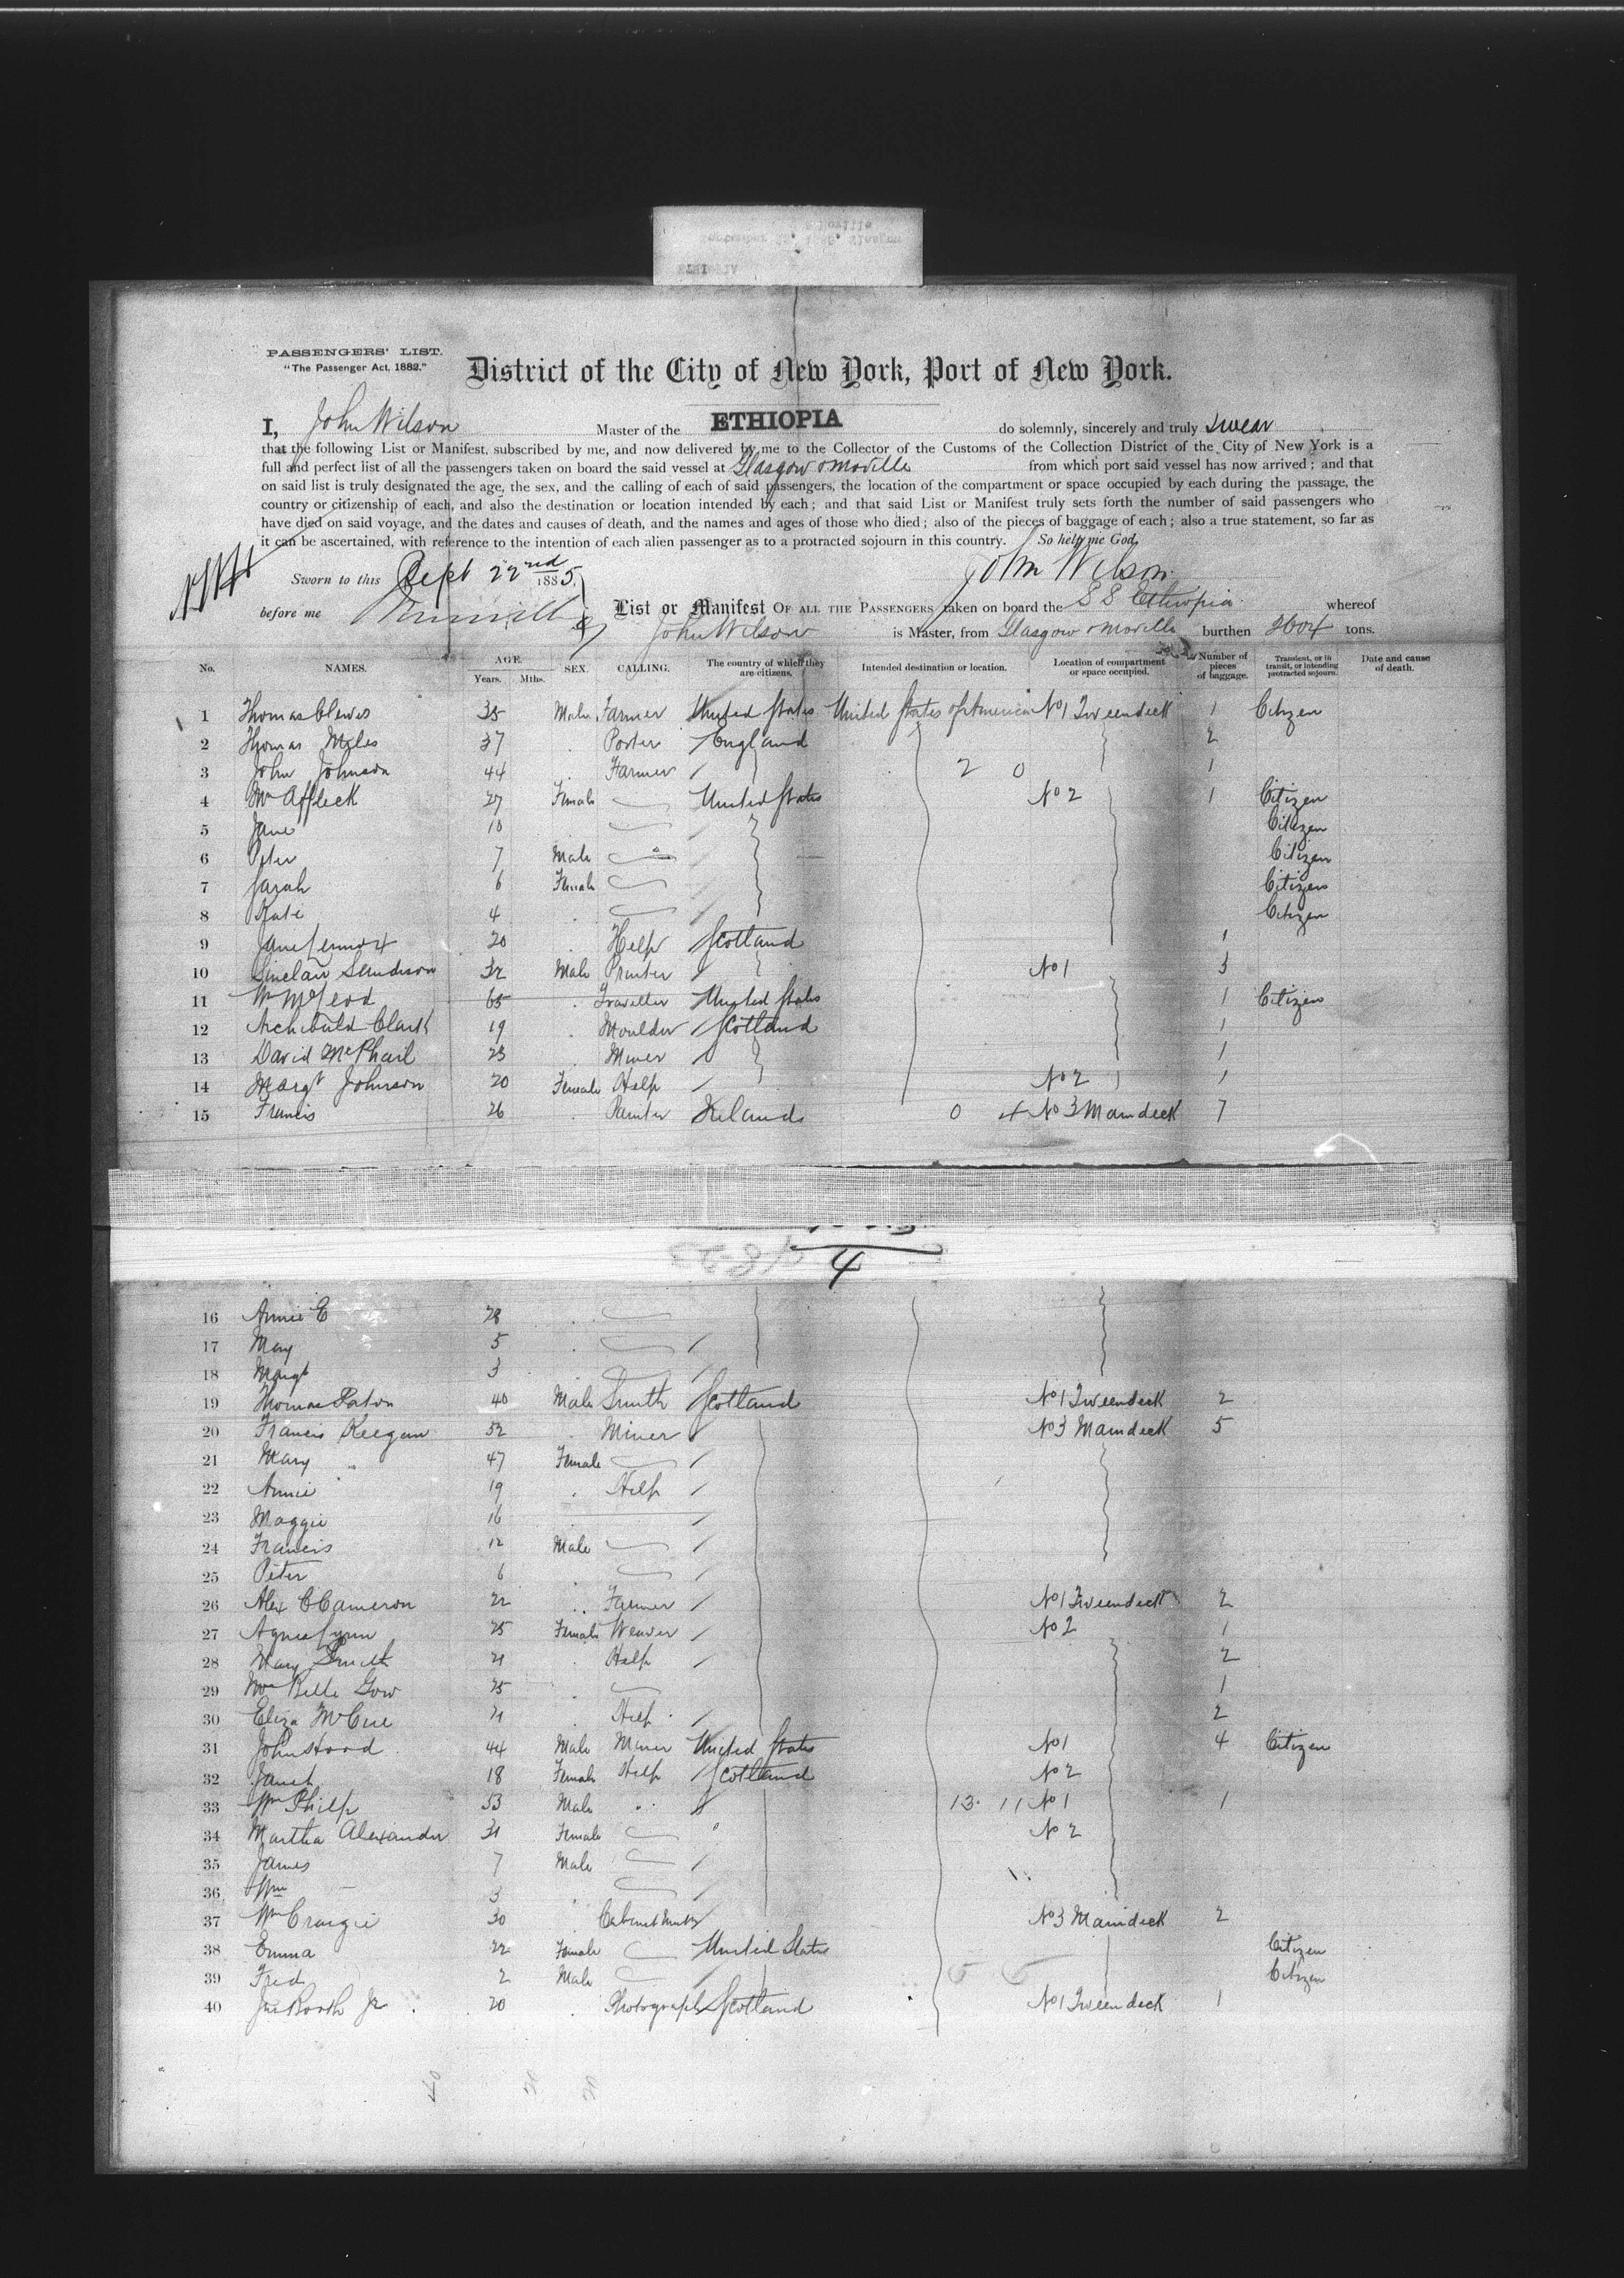 PASSENGERS' LIST.
"The Passenger Act, 1882."
District of the City of New York, Port of New York.
I, John Wilson Master of the ETHIOPIA do solemnly, sincerely and truly swear
that the following List or Manifest, subscribed by me, and now delivered by me to the Collector of the Customs of the Collection District of the City of New York is a
full and perfect list of all the passengers taken on board the said vessel at Glasgow & Moville from which port said vessel has now arrived; and that
on said list is truly designated the age, the sex, and the calling of each of said passengers, the location of the compartment or space occupied by each during the passage, the
country or citizenship of each, and also the destination or location intended by each; and that said List or Manifest truly sets forth the number of said passengers who
have died on said voyage, and the dates and causes of death, and the names and ages of those who died; also of the pieces of baggage of each; also a true statement, so far as
it can be ascertained, with reference to the intention of each alien passenger as to a protracted sojourn in this country. So help me God,
Sworn to this Sept 22nd 1885, John Wilson
before me
List or Manifest OF ALL THE PASSENGERS taken on board the S S Ethiopia whereof
John Wilson is Master, from Glasgow & Moville burthen 2604 tons.
No. NAMES. AGE. Years. Mths. SEX. CALLING. The country of which they are citizens. Intended destination or location. Location of compartment or space occupied. Number of pieces of baggage. Transient, or in transit, or intending protracted sojourn. Date and cause of death.
1 Thomas Clewes 35 Male Farmer United States United States of America No 1 Tweendeck 1 Citizen
2 Thomas Miles 37 Porter England 2
3 John Johnson 44 Farmer 2 0 1
4 Mrs Affleck 27 Female United States No 2 1 Citizen
5 Jane 10 Citizen
6 Peter 7 Male Citizen
7 Sarah 6 Female Citizen
8 Kate 4 Citizen
9 Jane Lennox 20 Help Scotland 1
10 Sinclair Sandison 32 Male Printer No 1 3
11 Wm McLeod 65 Traveller United States 1 Citizen
12 Archibald Clark 19 Moulder Scotland 1
13 David McPhail 23 Miner 1
14 Margt Johnson 20 Female Help No 2 1
15 Francis 26 Painter Ireland 0 4 No 3 Maindeck 7
4
16 Annie E 28
17 May 5
18 Margt 3
19 Thomas Paton 40 Male Smith Scotland No 1 Tweendeck 2
20 Francis Keegan 52 Miner No 3 Maindeck 5
21 Mary " 47 Female
22 Annie 19 Help
23 Maggie 16
24 Francis 12 Male
25 Peter 6
26 Alex C Cameron 22 Farmer No 1 Tweendeck 2
27 Agnes Lynn 25 Female Weaver No 2 1
28 Mary Smith 21 Help 2
29 Mrs Belle Gow 25 1
30 Eliza McCue 21 Help 2
31 John Hood 44 Male Miner United States No 1 4 Citizen
32 Janet 18 Female Help Scotland No 2
33 Wm Philp 53 Male " 13 11 No 1 1
34 Martha Alexander 31 Female No 2
35 James 7 Male
36 Wm 3
37 Wm Craigie 30 No 3 Maindeck 2
38 Emma 22 Female United States Citizen
39 Fred 2 Male 5 5 Citizen
40 Jr 20 Photograph Scotland No 1 Tweendeck 1